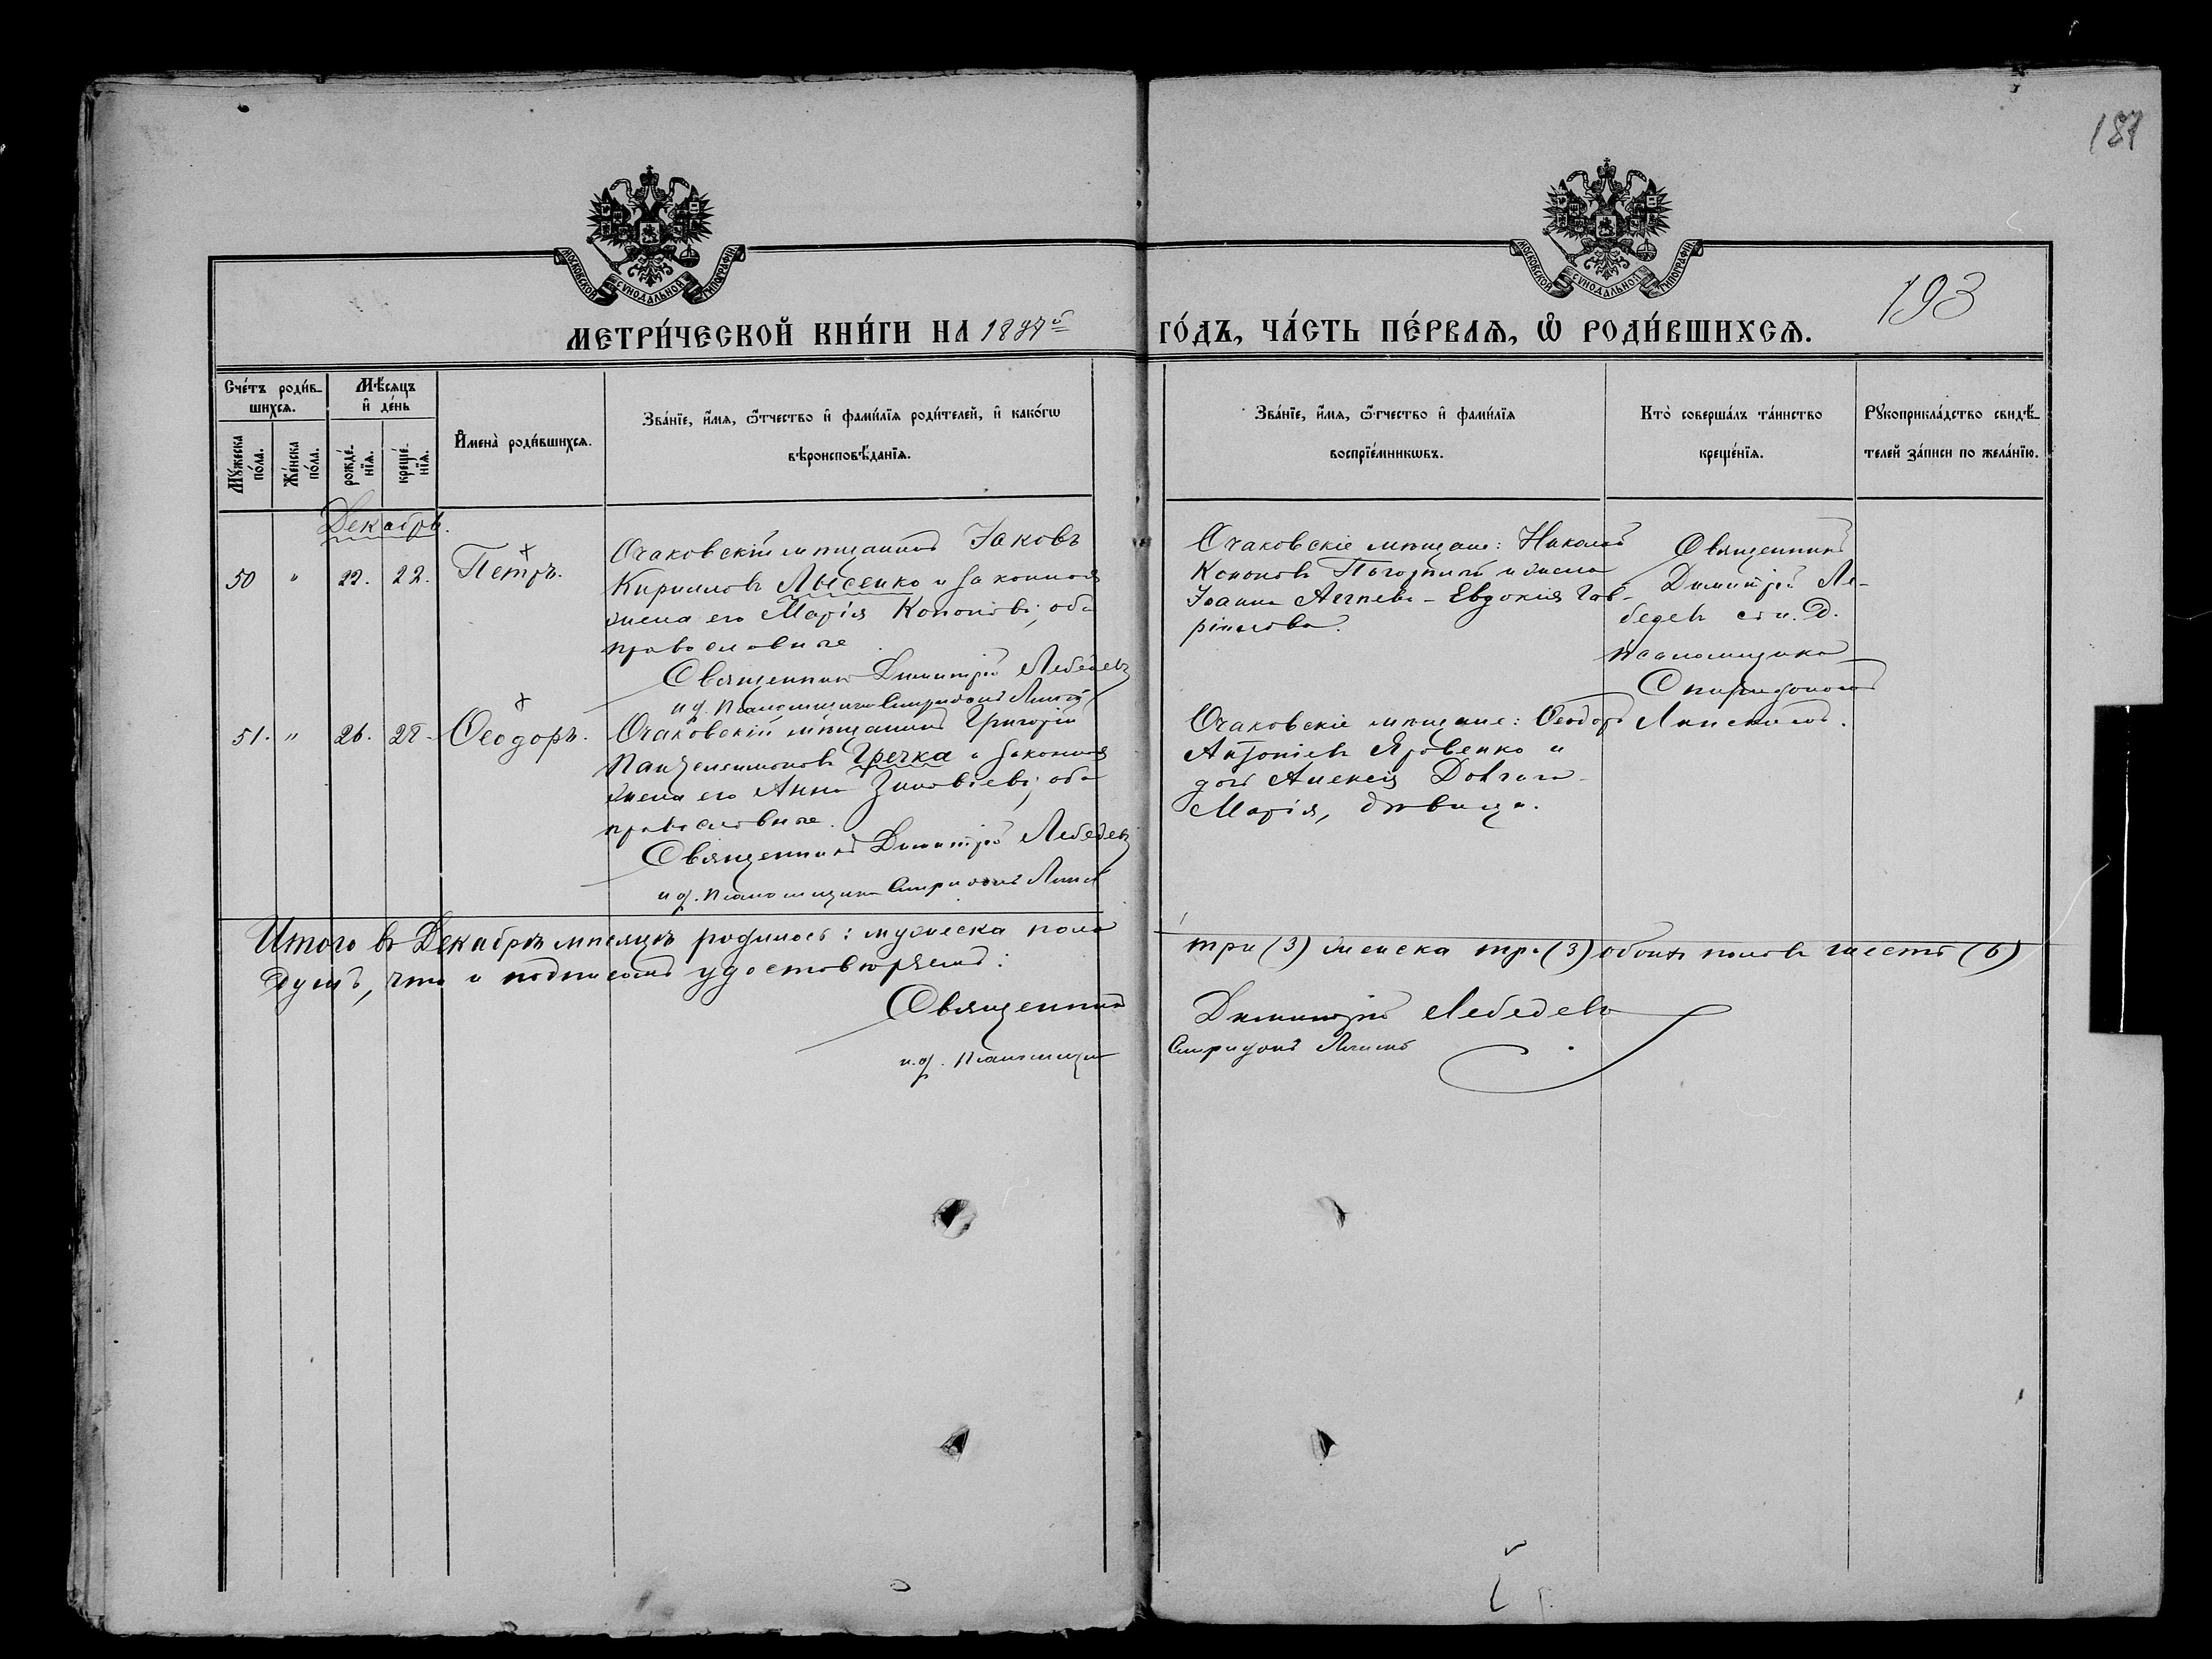 187
МОСКОВСКОЙ СѴНОДАЛЬНОЙ ТИПОГРАФІИ
МОСКОВСКОЙ СѴНОДАЛЬНОЙ ТИПОГРАФІИ
193
МЕТРИ́ЧЕСКОЙ КНИ́ГИ НА 1897й ГО́ДЪ, ЧА́СТЬ ПЕ́РВАѦ, Ѡ҆ РОДИ́ВШИХСѦ.
Сче́тъ роди́в-
шихсѧ.
Мꙋ́жеска по́ла.
Же́нска по́ла.
Мѣ́сѧцъ
и҆ де́нь
рожде́-нїѧ.
креще́-нїѧ.
И҆мена̀ роди́вшихсѧ.
Зва́нїе, и҆́мѧ, ѻ҆́тчество и҆ фами́лїѧ роди́телей, и҆ како́гѡ
вѣроисповѣ́данїѧ.
Зва́нїе, и҆́мѧ, ѻ҆́тчество и҆ фами́лїѧ
воспрїе́мникѡвъ.
Кто̀ соверша́лъ та́инство
креще́нїѧ.
Рꙋкоприкла́дство свидѣ́-
телей за́писи по жела́нїю.
Декабрь.
50 " 22. 22. Петръ.
Очаковскій мѣщанинъ Іаковъ
Кирилловъ Лысенко и законная
жена его Марія Кононова; оба
православные
Священникъ Димитрій Лебедевъ
и.д. Псаломщика Спиридонъ
Очаковскіе мѣщане: Николай
Кононовъ и жена
Іоанна - Евдокія Гав-
ріилова.
Священникъ
Димитрій Ле-
бедевъ съ и. д.
Псаломщика
Спиридономъ
51. " 26. 28. Ѳеодоръ.
Очаковскій мѣщанинъ Григорій
Пантелеимоновъ Гречка и законная
жена его Анна Зиновіева; оба
православные.
Священникъ Димитрій Лебедевъ
и.д. Псаломщика Спиридонъ
Очаковскіе мѣщане: Ѳеодоръ
Антоніевъ Яровенко и
дочь Алексія Довгаго
Марія, дѣвица.
Итого въ Декабрѣ мѣсяцѣ родилось: мужеска пола три (3) женска три (3) обоихъ половъ шесть (6)
душъ, что и подписомъ удостовѣряемъ:
Священникъ Димитрій Лебедевъ
и.д. Псаломщика Спиридонъ